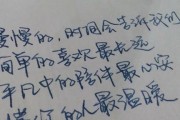 慢慢的,时间会告诉我们
简单的喜欢最长远
平凡中的陪伴最心安
懂你的人最温暖